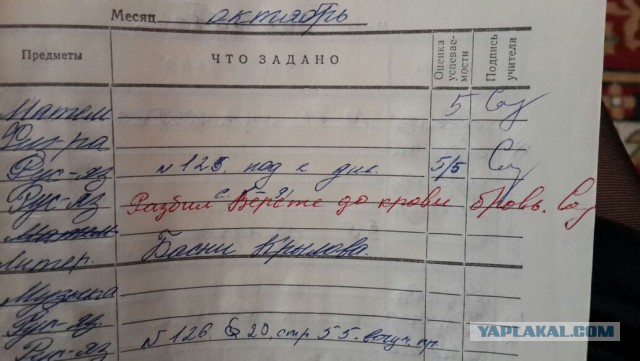 Месяц октябрь
Предметы ЧТО ЗАДАНО Оценка успевае-мости Подпись учителя
Матем 5
Физ-ра
Рус-яз № 125. под к дик. 5/5
Рус-яз Разбил Серёже до крови бровь.
Матем
Литер. Басни Крылова.
Музыка
Рус-яз.
Рус-яз № 126 § 20, стр 55.
YAPLAKAL.COM